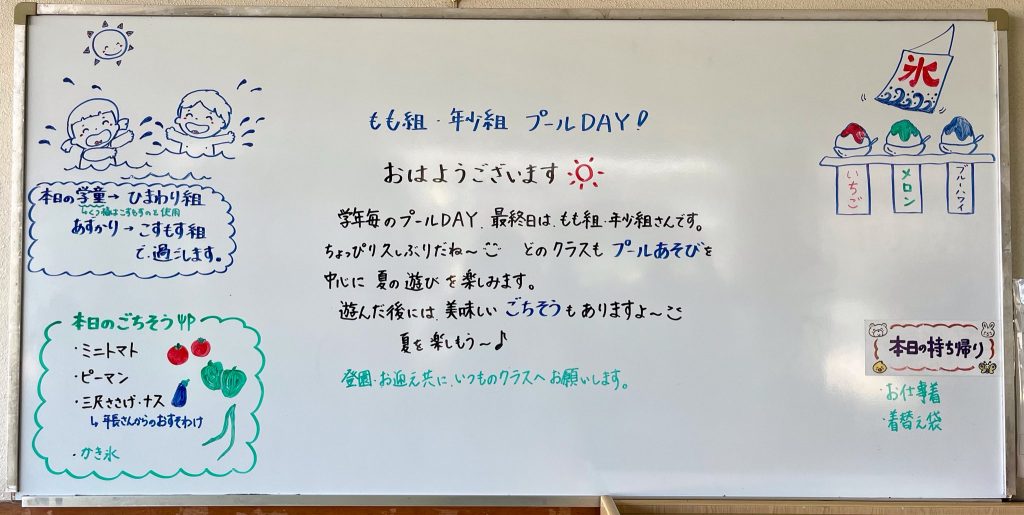 もも組・年少組 プールDAY!
おはようございます
学年毎のプールDAY、最終日は、もも組・年少組さんです。
ちょっぴり久しぶりだね〜 どのクラスも プールあそびを
中心に 夏の遊びを楽しみます。
遊んだ後には、美味しい ごちそうもありますよ〜
夏を楽しもう〜♪
登園・お迎え共に、いつものクラスへお願いします。
本日の学童→ひまわり組
↳くつ箱はこすもすのを使用
あずかり→こすもす組
で、過ごします。
本日のごちそう
・ミニトマト
・ピーマン
・三尺ささげ・ナス
↳年長さんからのおすそわけ
・かき氷
氷
いちご
メロン
ブルーハワイ
本日の持ち帰り
・お仕事着
・着替え袋